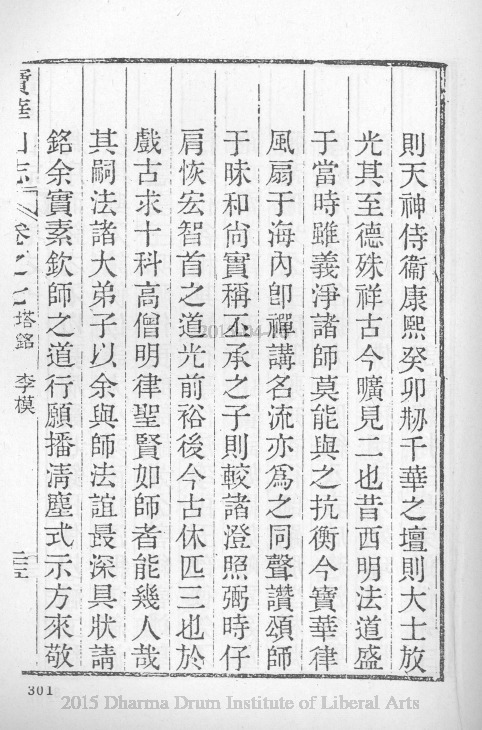 則天神侍衞康熙癸卯剏千華之壇則大士放
光其至德殊祥古今曠見二也昔西明法道盛
于當時雖義淨諸師莫能與之抗衡今寶華律
風扇于海內卽禪講名流亦爲之同聲讚頌師
于昧和尙實稱丕承之子則較諸澄照弼時仔
肩恢宏智首之道光前裕後今古休匹三也於
戲古求十科高僧明律聖賢如師者能幾人哉
其嗣法諸大弟子以余與師法誼最深具狀請
銘余實素欽師之道行願播淸塵式示方來敬
寶華山志 卷之七 塔銘 李模
301
2015 Dharma Drum Institute of Liberal Arts